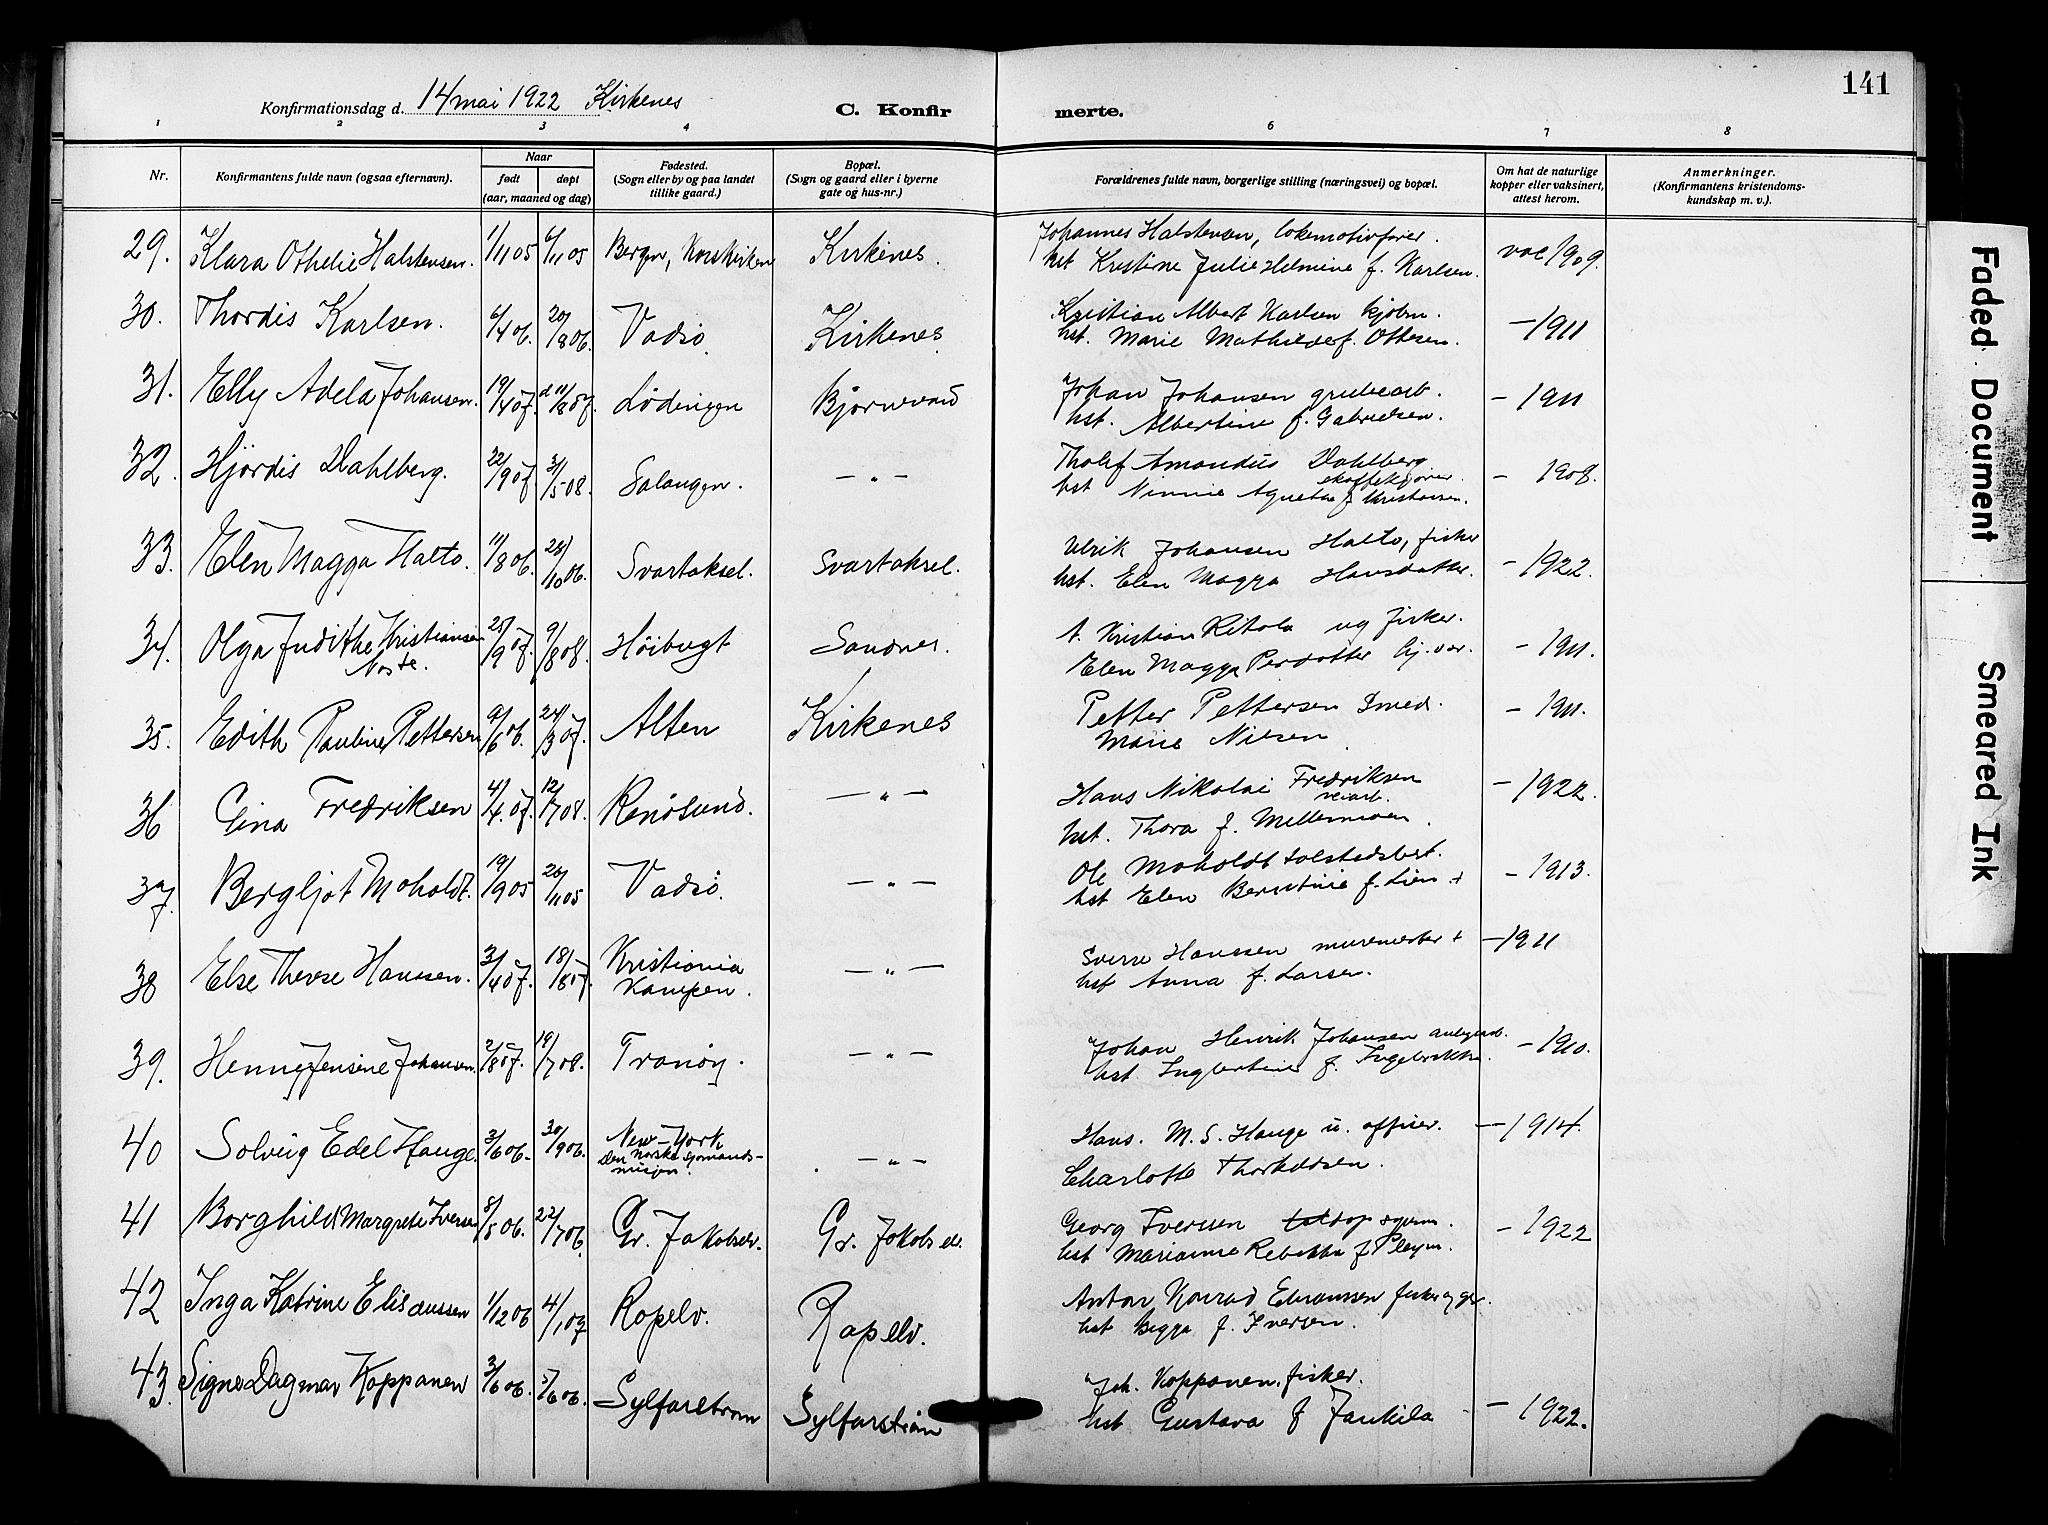 141
Konfirmationsdag d. 14 mai 1922 Kirkenes
C. Konfirmerte.
1 2 3 4 6 7 8
Nr.
Konfirmantens fulde navn (ogsaa efternavn).
Naar
født døpt
(aar, maaned og dag)
Fødested.
(Sogn eller by og paa landet
tillike gaard.)
Bopæl.
(Sogn og gaard eller i byerne
gate og hus-nr.)
Forældrenes fulde navn, borgerlige stilling (næringsvei) og bopæl.
Om hat de naturlige
kopper eller vaksinert,
attest herom.
Anmerkninger.
(Konfirmantens kristendoms-
kundskap m. v.).
29. Klara Othelie Halstensen. 1/11 05 6/11 05 Bergen, Korskirken Kirkenes. Johannes Halstensen, lokomotivfører. vac 1909.
hst Kristine Julie Helmine f. Karlsen.
30. Thordis Karlsen. 6/4 06. 20/8 06. Vadsø. Kirkenes Kristian Albert Karlsen kjøbm. - 1911
hst. Marie Mathilde f. Ottesen.
31. Elly Adela Johansen. 19/4 07. d 11/8 07. Lødingen Bjørnevand Johan Johansen grubearb. - 1911
hst. Albertine f. Gabrielsen.
32. Hjørdis Dahlberg. 22/9 07. 3/5 08. Salangen. - " - Tholef Amandus Dahlberg - 1908.
hst Ninnie Agnetha f. Kristansen.
33. Elen Magga Halto. 11/8 06. 28/10 06. Svartaksel. Svartaksel. Ulrik Johansen Halto, fisker - 1922.
hst. Elen Magga Hansdatter.
34. Olga Judithe Kristiansen 25/9 07. 9/8 08. Høibugt Sandnes. Kristian Ritola ug fisker. - 1911.
Elen Magga Persdatter
35. Edith Pauline Pettersen 9/6 06. 24/3 07. Alten Kirkenes Petter Pettersen Smed. - 1911.
Marie Nilsen
36 Gina Fredriksen 4/4. 07. 12/7 08. Renøsund. - " - Hans Nikolai Fredriksen - 1922.
veiarb.
hst. Thora f. Mellemmoen.
37. Bergljot Moholdt. 19/9 05 26/11 05 Vadsø. - " - Ole Moholdt tolstedsbest. - 1913.
hst Elen Berntine f. Lien +
38 Else Therese Hanssen. 3/4 07. 18/8 07. Kristiania - " - Sverre Hanssen murmester + - 1911
Kampen. hst Anna f. Larsen.
39. Henny Jensine Johansen. 2/8 07. 19/7 08. Tranøy. - " - Johan Henrik Johansen anlegsarb. - 1910.
hst. Ingbertine f. Ingebrikts.
40 Solveig Edel Hauge. 3/6 06. 30/9 06. New-York - " - Hans. M. S. Hauge u. officer. - 1914.
Den norske sjømands-
misjon. Charlotte Thorkildsen.
41 Borghild Margrete Iversen 8/5 06. 22/7 06. Gr. Jakobselv. Gr. Jakobselv. Georg Iversen - 1922
hst Marianne Rebekka f. Pleym.
42 Inga Katrine Elisæussen 1/12 06 4/1 07 Ropelv. Ropelv. Anton Konrad Elisæussen fisker
hst Bigga f. Iversen.
43. Signe Dagmar Koppanen 3/6 06. 5/6 06. Sylfarstrøm Sylfarstrøm Joh. Koppanen, fisker. - 1922.
hst Gustava f. Jankila
Faded Document
Smeared Ink